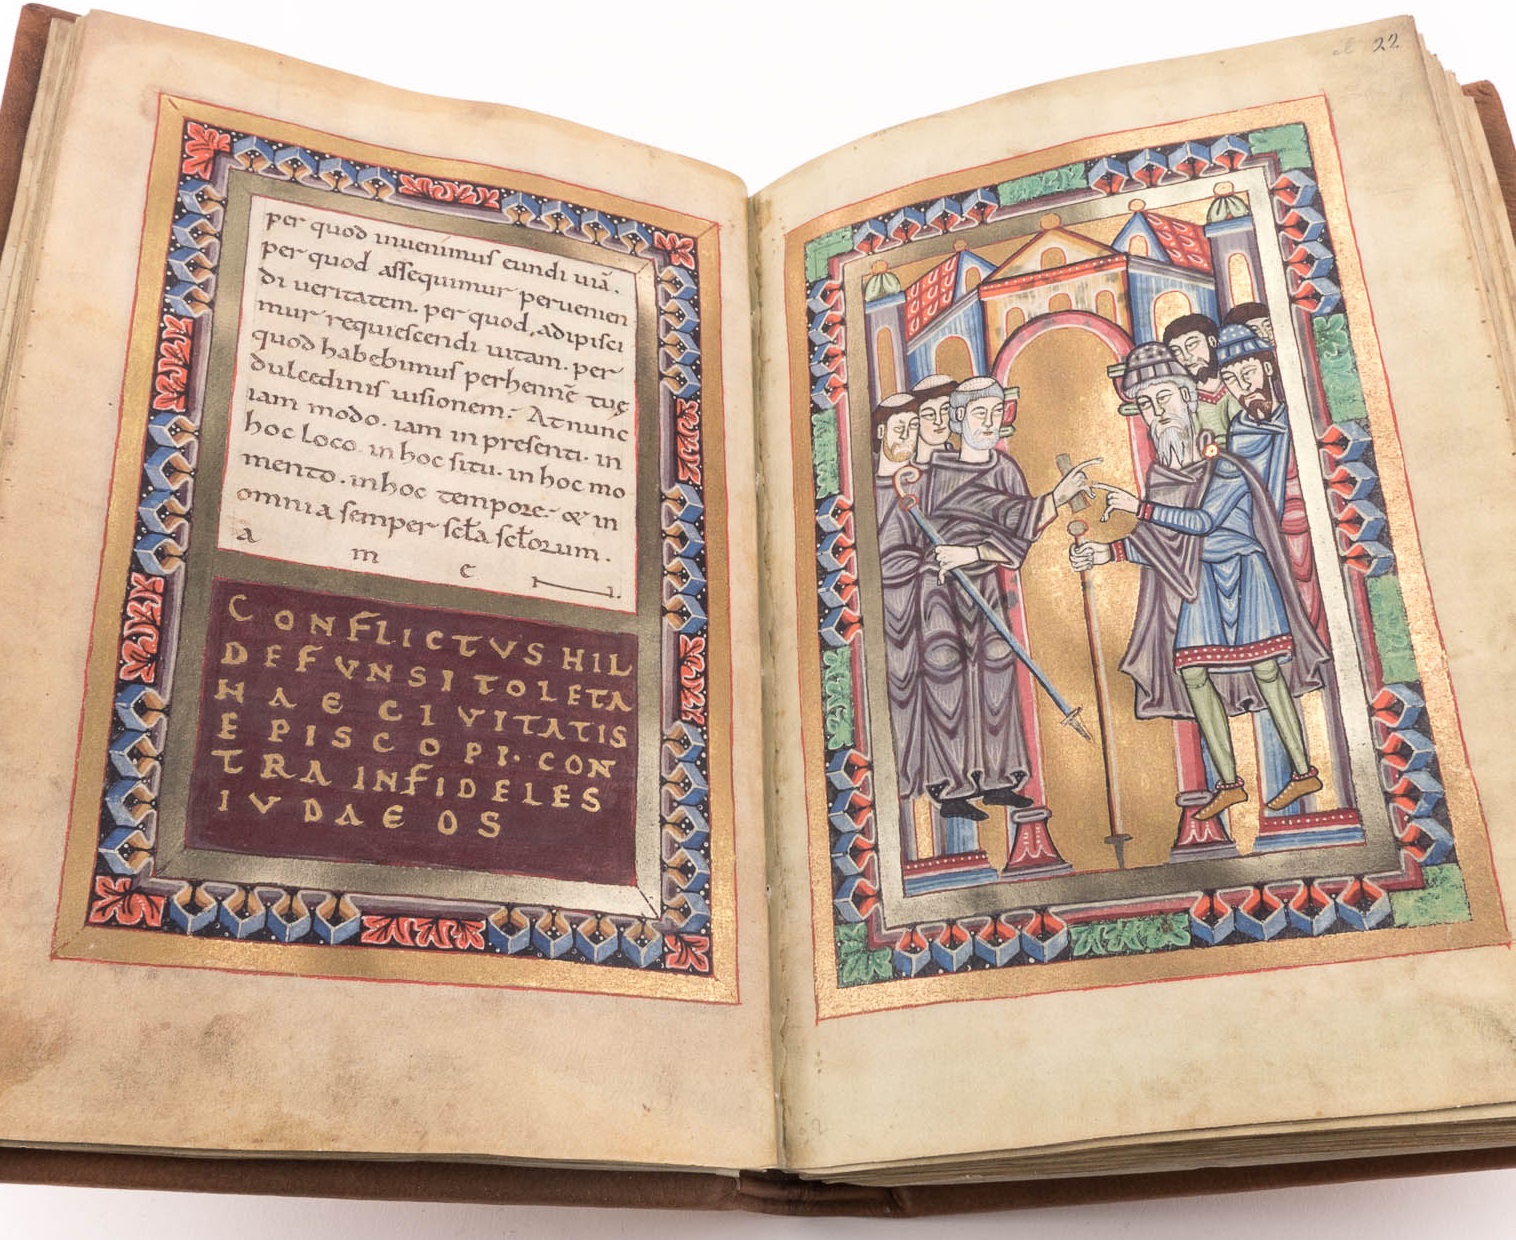 per quod inuenimus eundi uiā.
per quod assequimur peruenien
di ueritatem. per quod adipisci
mur requiescendi uitam. per
quod habebimus perhennē tuę
dulcedinis uisionem; At nunc
iam modo. iam in presenti. in
hoc loco. in hoc situ. in hoc mo
mento. in hoc tempore; & in
omnia semper scła scłorum.
a m e n.
CONFLICTVS HIL
DEFVNSI TOLETA
NAE CIVITATIS
EPISCOPI. CON
TRA INFIDELES
IVDAEOS
22